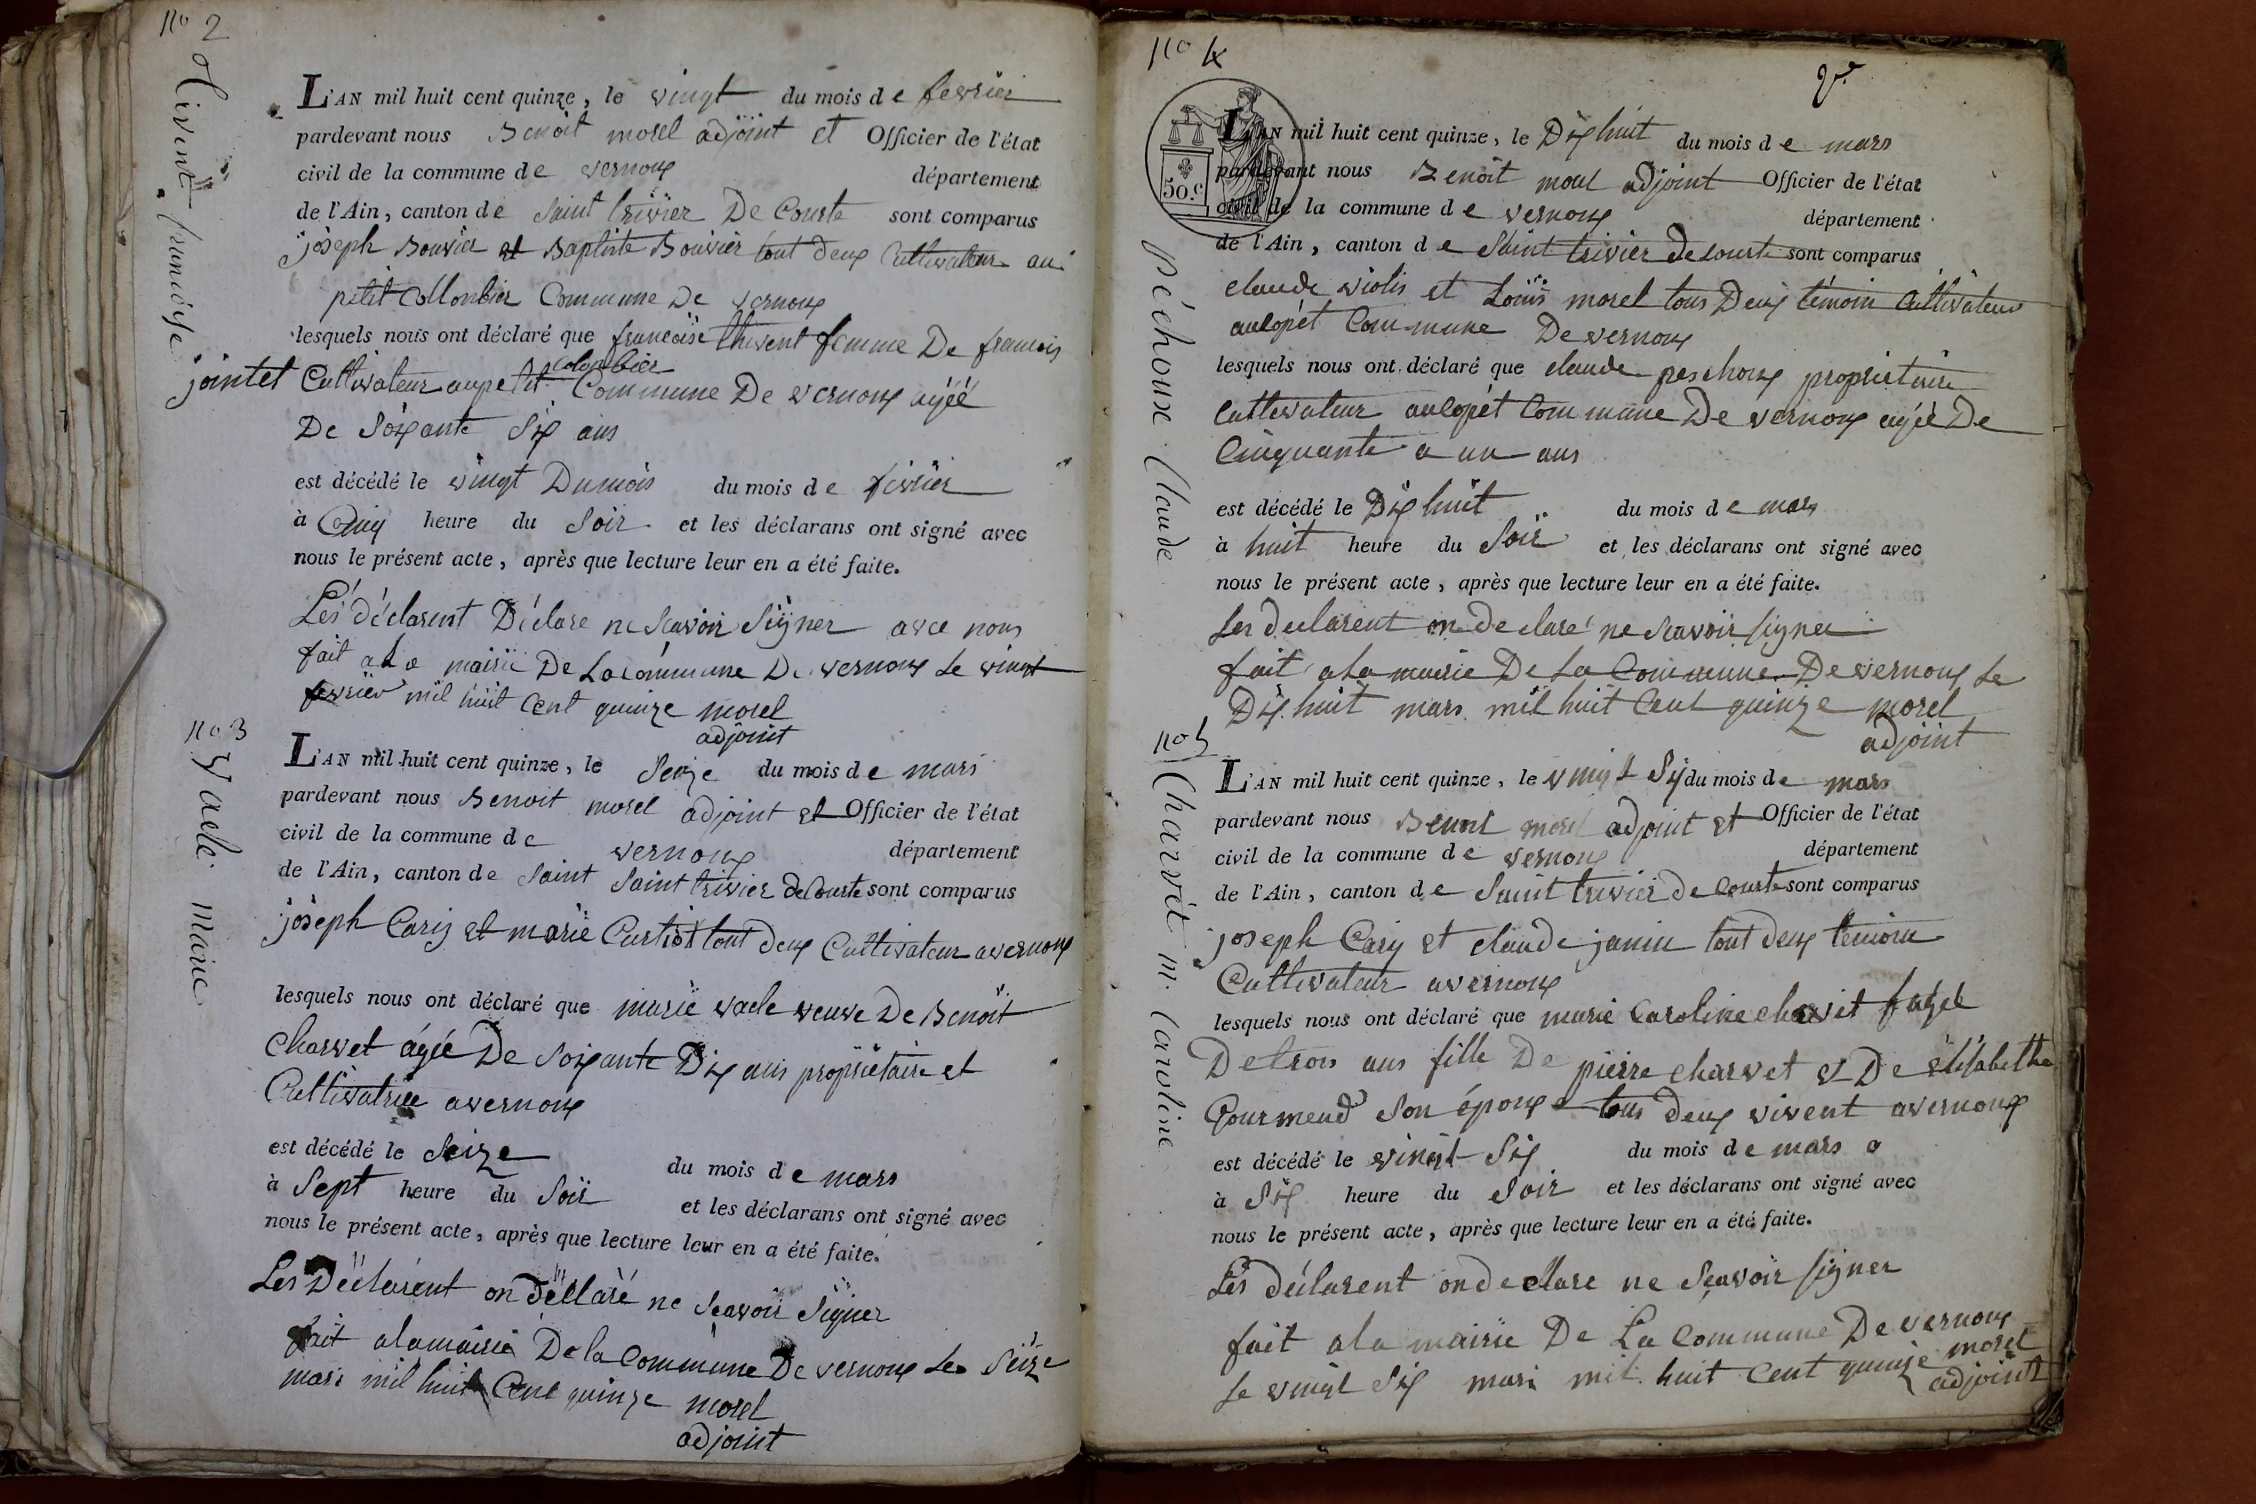 no 2
olivent françoise
L'AN mil huit cent quinze, le vingt du mois de fevrier
pardevant nous Benoit morel adjoint et Officier de l'état
civil de la commune de vernoux département
de l'Ain, canton de Saint trivier De Courte sont comparus
joseph Bouvier et Baptiste Bouvier tout deux Cultivateur au
petit Collonbier Commune De vernoux
lesquels nous ont déclaré que francoise femme De francois
jointet Cultivateur au petit colonbier Commune De vernoux agéé
De Soixante Six ans
est décédé le vingt Dumois du mois de fevrier
à Cinq heure du Soir et les déclarans ont signé avec
nous le présent acte, après que lecture leur en a été faite.
Les déclarent Déclare ne Scavoir Signer avec nous
fait a La mairie De La Commune De vernoux Le vingt
fevrier mil huit Cent quinze morel
adjoint
no 3
Vacle marie
L'AN mil huit cent quinze, le Seize du mois de mars
pardevant nous Benoit morel adjoint et Officier de l'état
civil de la commune de vernoux département
de l'Ain, canton de Saint Saint trivier de Courte sont comparus
joseph Cary et marie Curtist tout deux Cultivateur a vernoux
lesquels nous ont déclaré que marie vacle veuve De Benoit
Charvet agée De Soixante Dix ans propriétaire et
Cultivatrice a vernoux
est décédé le Seize du mois de mars
à Sept heure du Soir et les déclarans ont signé avec
nous le présent acte, après que lecture leur en a été faite.
Les Déclarent on déllaré ne Scavoir Signer
fait a la mairie De la Commune De vernoux Le Seize
mars mil huit Cent quinze morel
adjoint
no 4
50.c
Péchoux Claude
L'AN mil huit cent quinze, le Dix huit du mois de mars
pardevant nous Benoit morel adjoint Officier de l'état
civil de la commune de vernoux département
de l'Ain, canton de Saint trivier de Courte sont comparus
claude violis et Louis morel tous Deux témoin Cultivateur
au lopét Commune De vernoux
lesquels nous ont déclaré que claude peschoux proprietaire
Cultivateur au lopét Commune De vernoux agéé De
Cinquante a un ans
est décédé le Dix huit du mois de mars
à huit heure du Soir et les déclarans ont signé avec
nous le présent acte, après que lecture leur en a été faite.
Les declarent on declaré ne Scavoir signer
fait a La mairie De La Commune De vernoux Le
Dix huit mars mil huit Cent quinze morel
adjoint
no 5
Charvét m. Caroline
L'AN mil huit cent quinze, le vingt Six du mois de mars
pardevant nous Benoit morel adjoint et Officier de l'état
civil de la commune de vernoux département
de l'Ain, canton de Saint trivier de Courte sont comparus
joseph Cary et claude janin tout deux temoin
Cultivateur a vernoux
lesquels nous ont déclaré que marie Caroline charvet agée
De trois ans fille De pierre charvet et De elisabethe
Gourmend Son épouse tous deux vivent a vernoux
est décédé le vingt Six du mois de mars
à Six heure du Soir et les déclarans ont signé avec
nous le présent acte, après que lecture leur en a été faite.
Les déclarent on declare ne Scavoir signer
fait a la mairie De La Commune De vernoux
Le vingt Six mars mil huit Cent quinze morel
adjoint